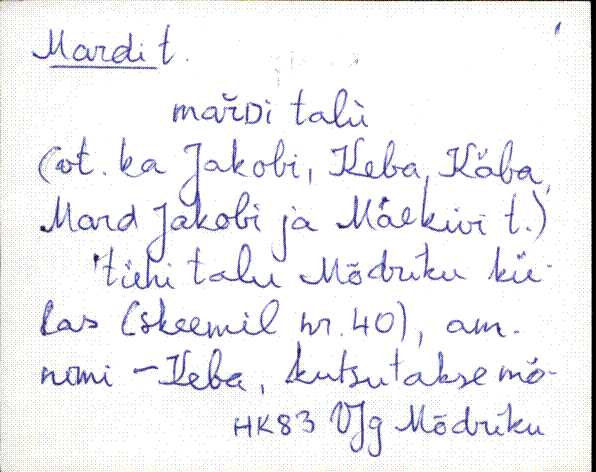 Mardi t.
mařDi talù
(vt. ka Jakobi, Keba, Käba,
Mard Jakobi ja Mäekivi t.)
'tühi talu Mõdriku kü-
las (skeemil nr. 40), am.
nimi – Keba, kutsutakse mõ-
HK83 VJg Mõdriku